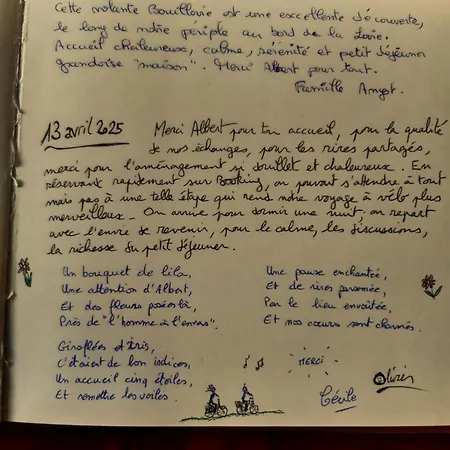 Cette volante Bouilloire est une excellente découverte,
le long de notre périple au bord de la Loire.
Accueil chaleureux, calme, sérénité et petit déjeuner
grandoise "maison". Merci Albert pour tout.
Famille Angot.
13 avril 2025 Merci Albert pour ton accueil, pour la qualité
de nos échanges, pour les rires partagés,
merci pour l'aménagement si douillet et chaleureux. En
réservant rapidement sur Booking, on pouvait s'attendre à tout
mais pas à une telle étape qui rend notre voyage à vélo plus
merveilleux. On arrive pour dormir une nuit, on repart
avec l'envie de revenir, pour le calme, les discussions,
la richesse du petit déjeuner.
Un bouquet de lila,
Une attention d'Albert,
Et des fleurs posées là,
Près de "l'homme à l'envers".
Giroflées d'Iris,
C'étaient de bon indices,
Un accueil cinq étoiles,
Et remettre les voiles.
Une pause enchantée,
Et de rires parsemée,
Par le lieu envoûtée,
Et nos cœurs sont charmés.
MERCI
Cécile
Olivier